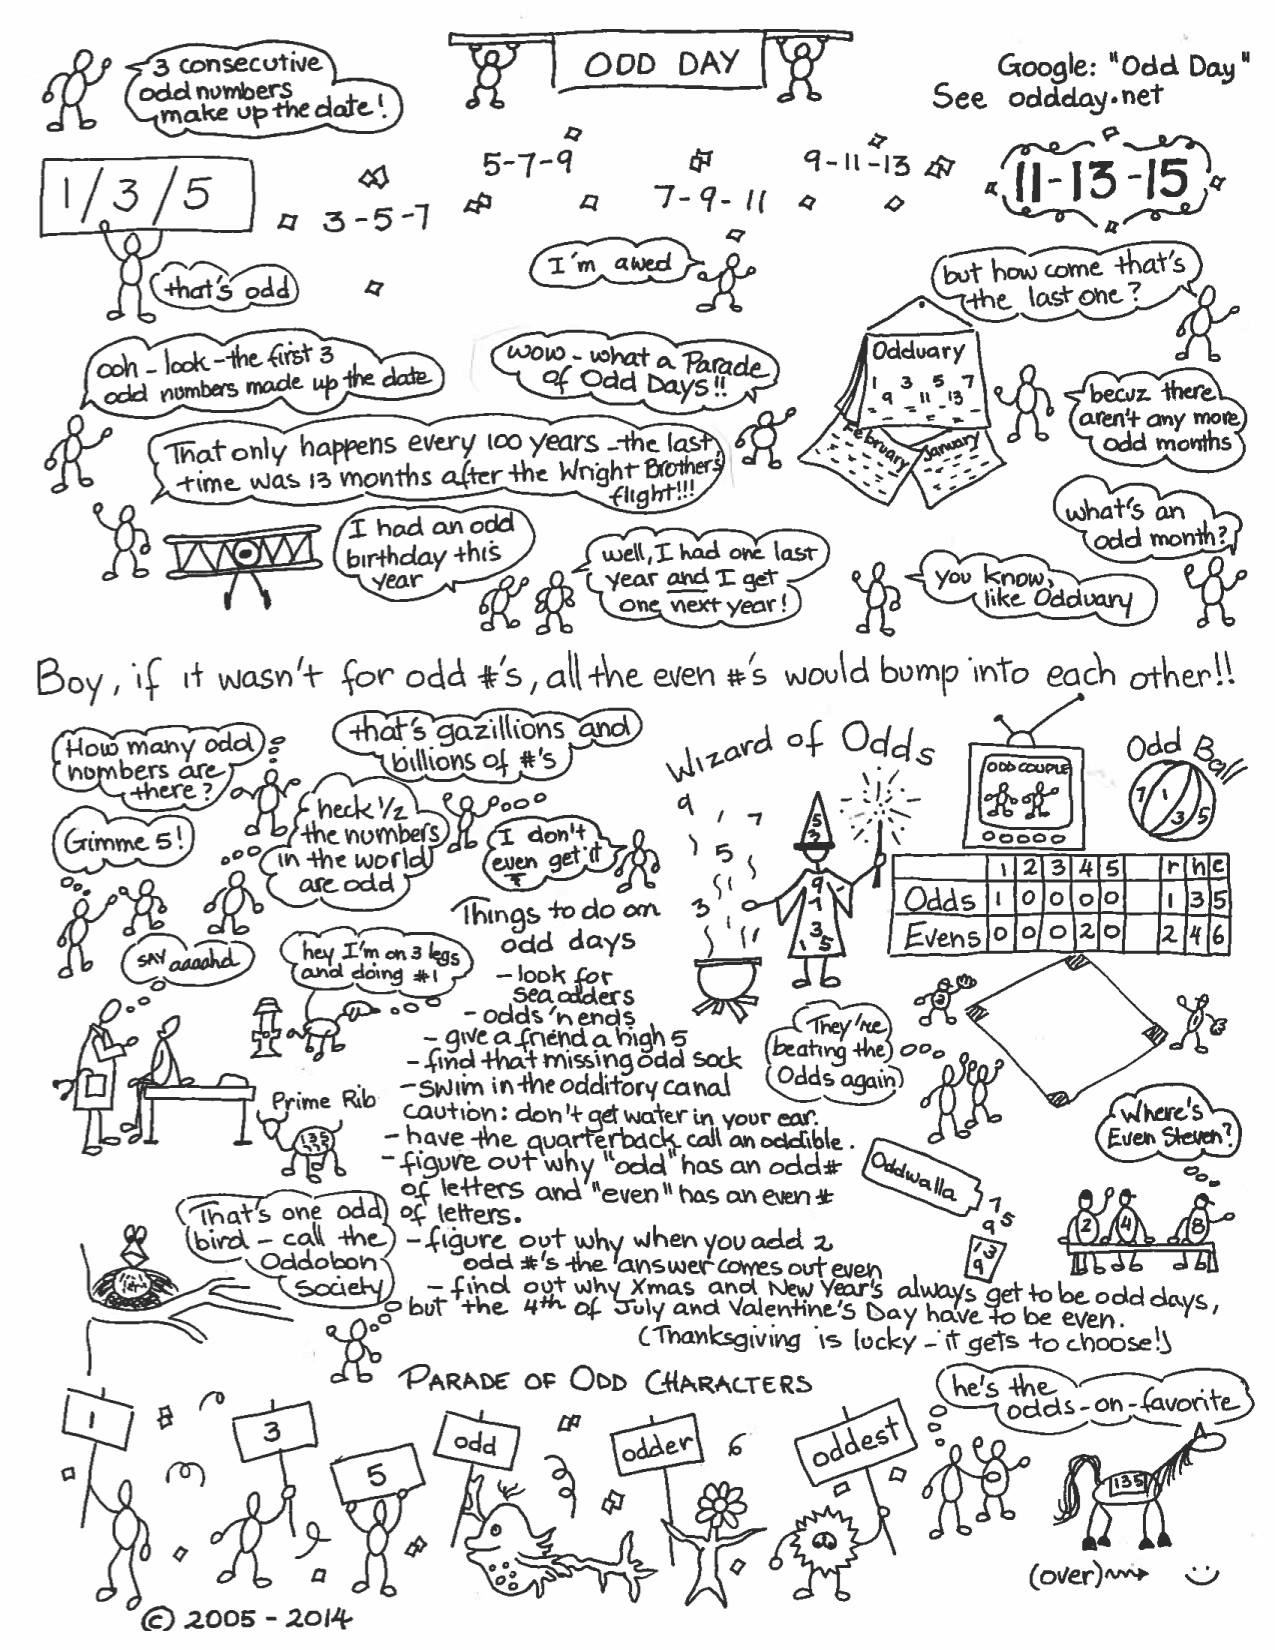 3 consecutive
odd numbers
make up the date!
ODD DAY
Google: "Odd Day"
See oddday.net
1/3/5
3-5-7
5-7-9
7-9-11
9-11-13
11-13-15
that's odd
I'm awed
but how come that's
the last one?
ooh - look - the first 3
odd numbers made up the date
wow - what a Parade
of Odd Days!!
Odduary
1 3 5 7
9 11 13
February
January
becuz there
aren't any more
odd months
That only happens every 100 years - the last
time was 13 months after the Wright Brothers
flight!!!
what's an
odd month?
I had an odd
birthday this
year
well, I had one last
year and I get
one next year!
you know,
like Odduary
Boy, if it wasn't for odd #'s, all the even #'s would bump into each other!!
How many odd
numbers are
there?
that's gazillions and
billions of #'s
Gimme 5!
heck 1/2
the numbers
in the world
are odd
I don't
even get it
Wizard of Odds
9 1 7
5
3
5
3
9
7
3
1 5
ODD COUPLE
Odd Ball
7 1 3 5
1 2 3 4 5 r h e
Odds 1 0 0 0 0 1 3 5
Evens 0 0 0 2 0 2 4 6
SAY aaaahd
hey I'm on 3 legs
and doing #1
Things to do on
odd days
- look for
sea odders
- odds 'n ends
- give a friend a high 5
- find that missing odd sock
- swim in the odditory canal
caution: don't get water in your ear.
- have the quarterback call an oddible.
- figure out why "odd" has an odd #
of letters and "even" has an even #
of letters.
- figure out why when you add 2
odd #'s the answer comes out even
- find out why Xmas and New Year's always get to be odd days,
but the 4th of July and Valentine's Day have to be even.
(Thanksgiving is lucky - it gets to choose!)
They're
beating the
Odds again
2
Where's
Even Steven?
2 4 8
Oddwalla
7
9 5
13
9
Prime Rib
135
That's one odd
bird - call the
Oddobon
Society
PARADE OF ODD CHARACTERS
1
3
5
odd
odder
oddest
he's the
odds-on-favorite
135
(over)
© 2005 - 2014